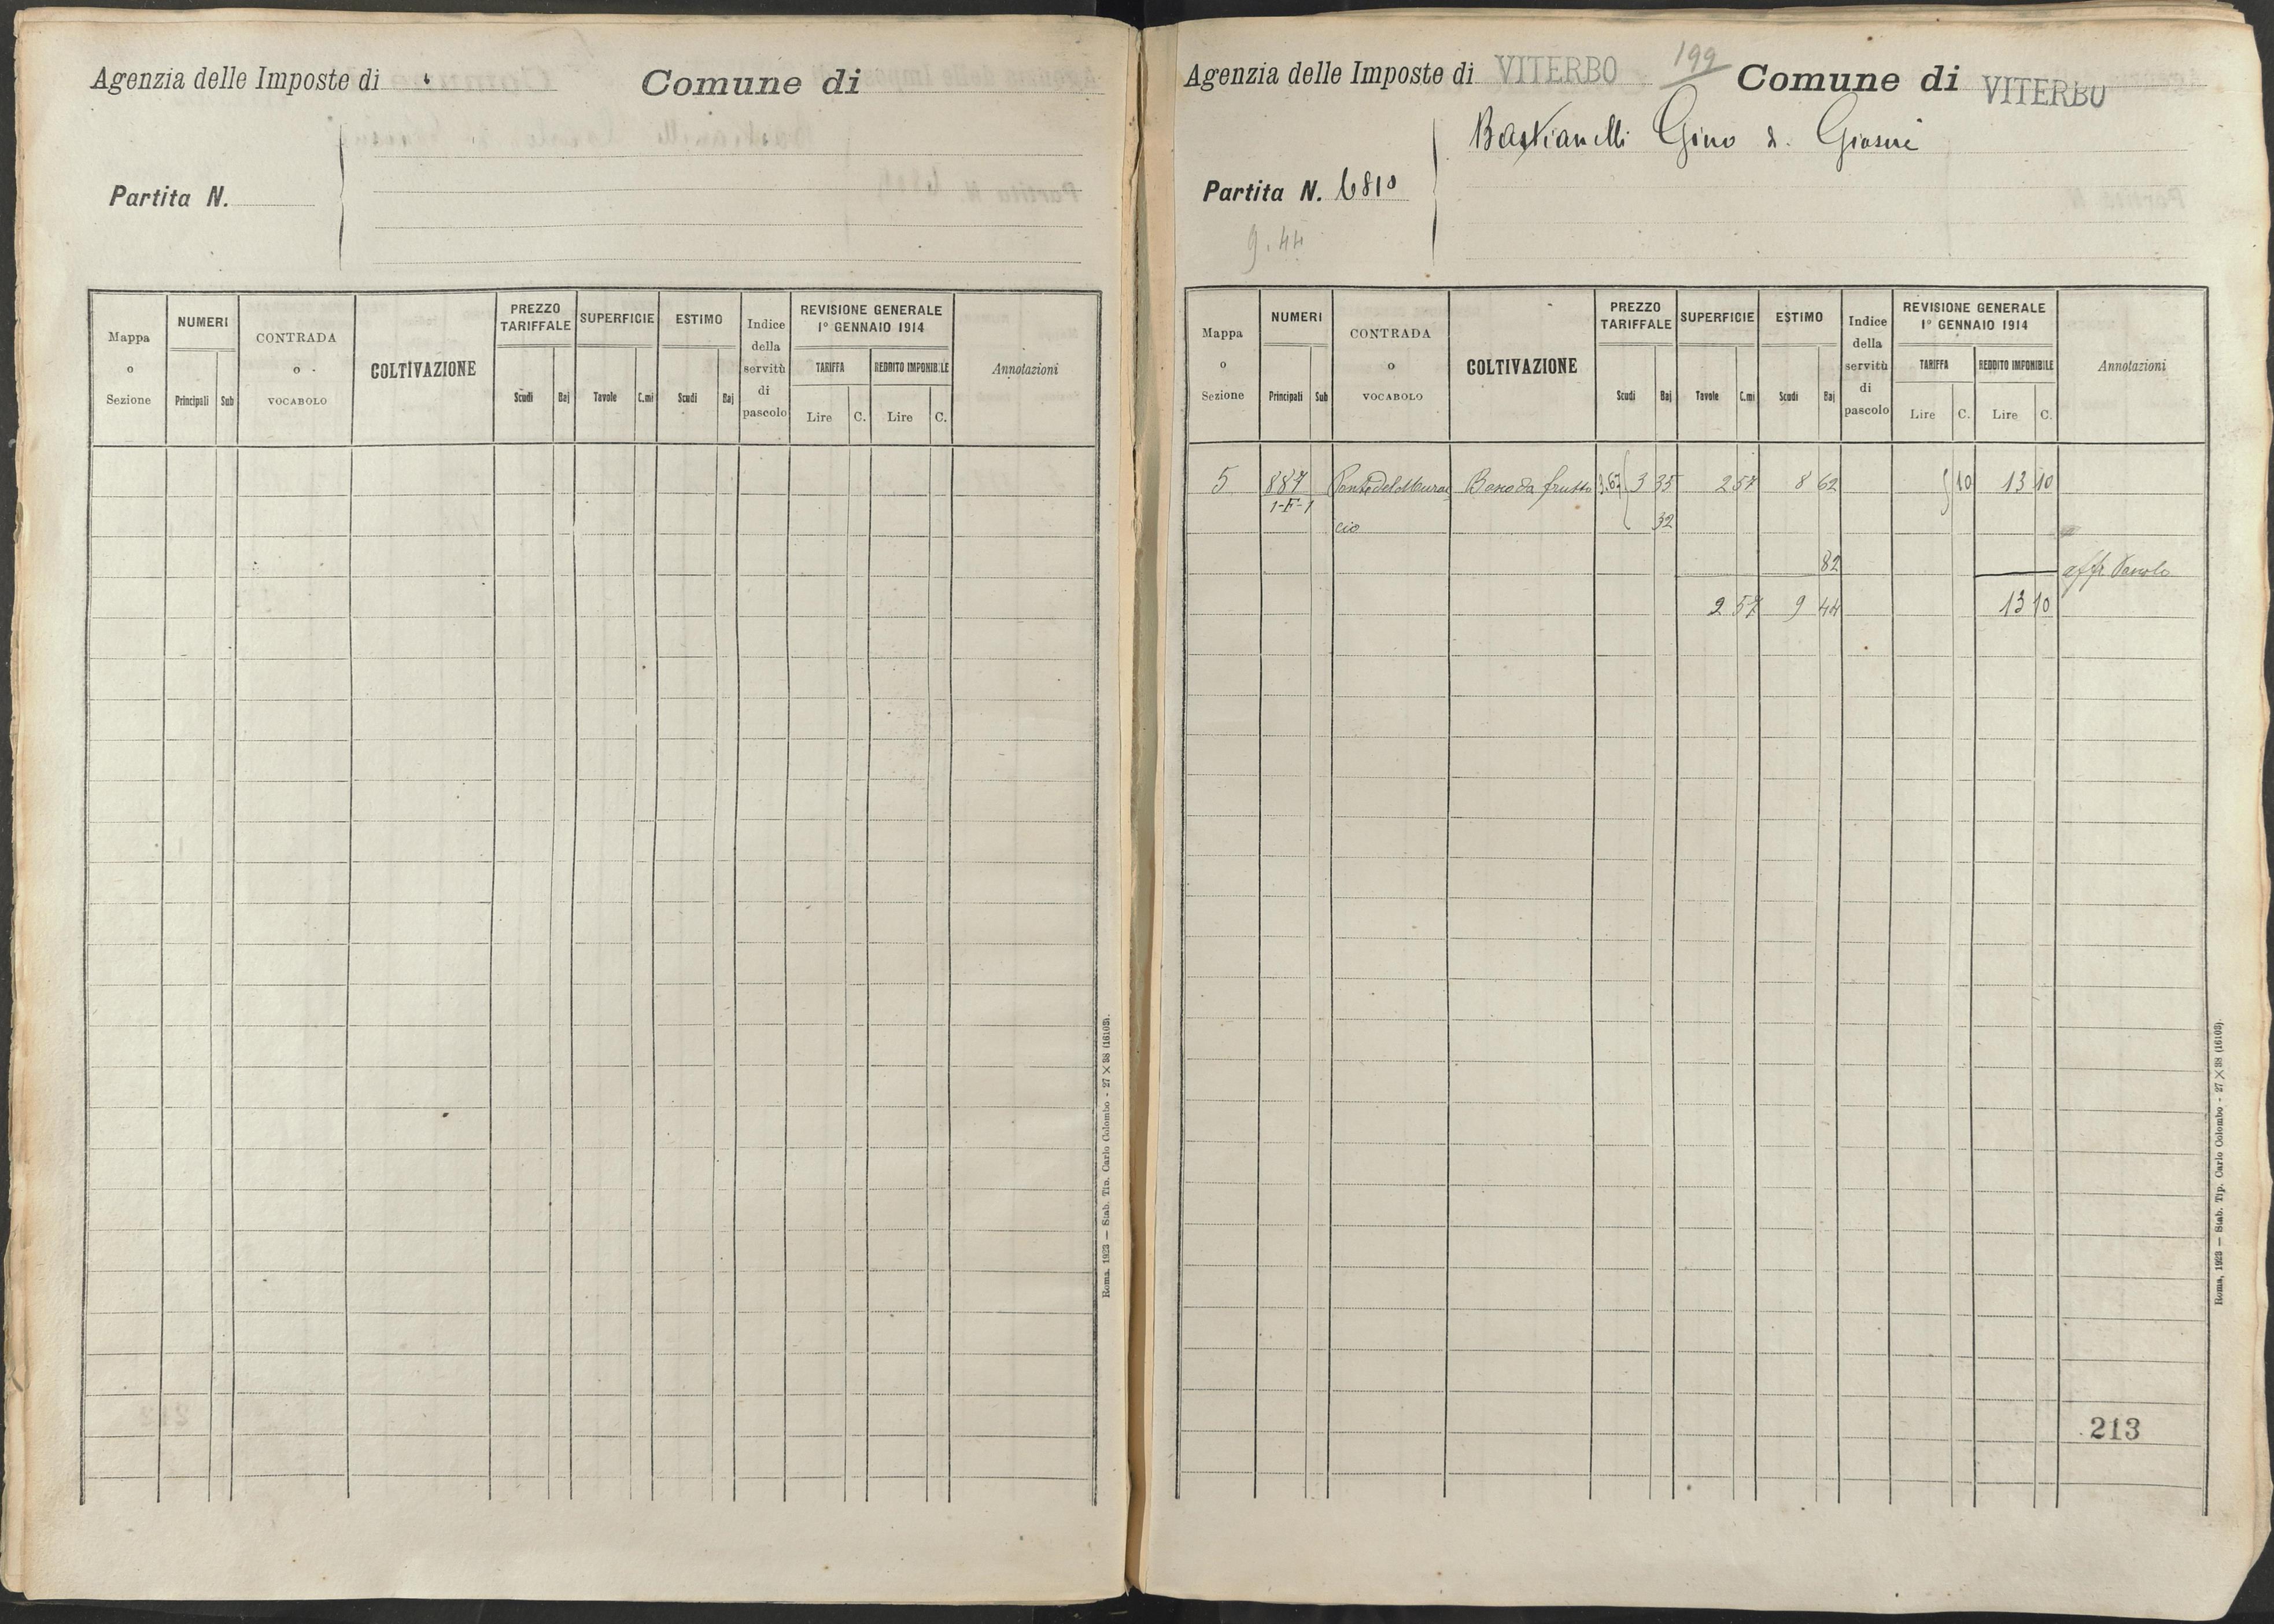 Agenzia delle Imposte di
Comune di
Partita N.
Mappa o Sezione
NUMERI
Principali Sub
CONTRADA o VOCABOLO
COLTIVAZIONE
PREZZO TARIFFALE
Scudi Baj
SUPERFICIE
Tavole C.mi
ESTIMO
Scudi Baj
Indice della servitù di pascolo
REVISIONE GENERALE
1° GENNAIO 1914
TARIFFA
Lire C.
REDDITO IMPONIBILE
Lire C.
Annotazioni
Roma, 1923 — Stab. Tip. Carlo Colombo - 27 X 38 (16103).
Agenzia delle Imposte di VITERBO
199
Comune di VITERBO
Bastianelli Gino d. Giosuè
Partita N. 6810
9.44
Mappa o Sezione
NUMERI
Principali Sub
CONTRADA o VOCABOLO
COLTIVAZIONE
PREZZO TARIFFALE
Scudi Baj
SUPERFICIE
Tavole C.mi
ESTIMO
Scudi Baj
Indice della servitù di pascolo
REVISIONE GENERALE
1° GENNAIO 1914
TARIFFA
Lire C.
REDDITO IMPONIBILE
Lire C.
Annotazioni
5 887 Ponte del Murac Bosco da frutto 3.67 3 35 2 57 8 62 5 10 13 10
1-F-1
cio 32
82 affr Pascolo
2 57 9 44 13 10
213
Roma, 1923 — Stab. Tip. Carlo Colombo - 27 X 38 (16103).